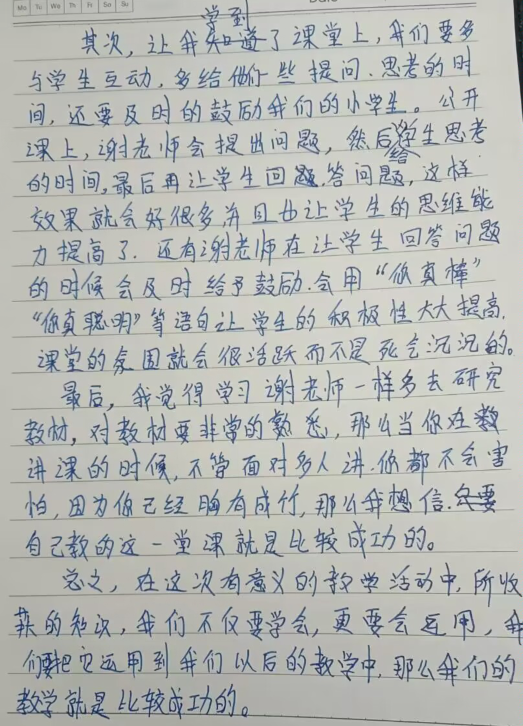 Mo Tu We Th Fr Sa Su
学到
其次，让我知道了课堂上，我们要多
与学生互动，多给他们一些提问、思考的时
间，还要及时的鼓励我们的小学生。公开
课上，谢老师会提出问题，然后给学生思考
的时间，最后再让学生回答问题，这样
效果就会好很多，并且也让学生的思维能
力提高了。还有谢老师在让学生回答问题
的时候会及时给予鼓励.会用“你真棒”
“你真聪明”等语句让学生的积极性大大提高.
课堂的氛围就会很活跃而不是死气沉沉的。
最后，我觉得学习谢老师一样多去研究
教材，对教材要非常的熟悉，那么当你在
讲课的时候，不管面对多人讲.你都不会害
怕，因为你已经胸有成竹，那么我想信.
自己教的这一堂课就是比较成功的。
总之，在这次有意义的教学活动中，所收
获的知识，我们不仅要学会，更要会运用，我
们要把它运用到我们以后的教学中，那么我们的
教学就是比较成功的。